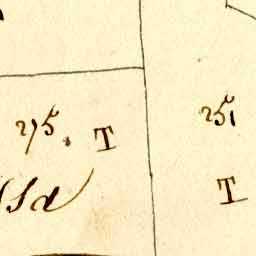 275. T
251
T